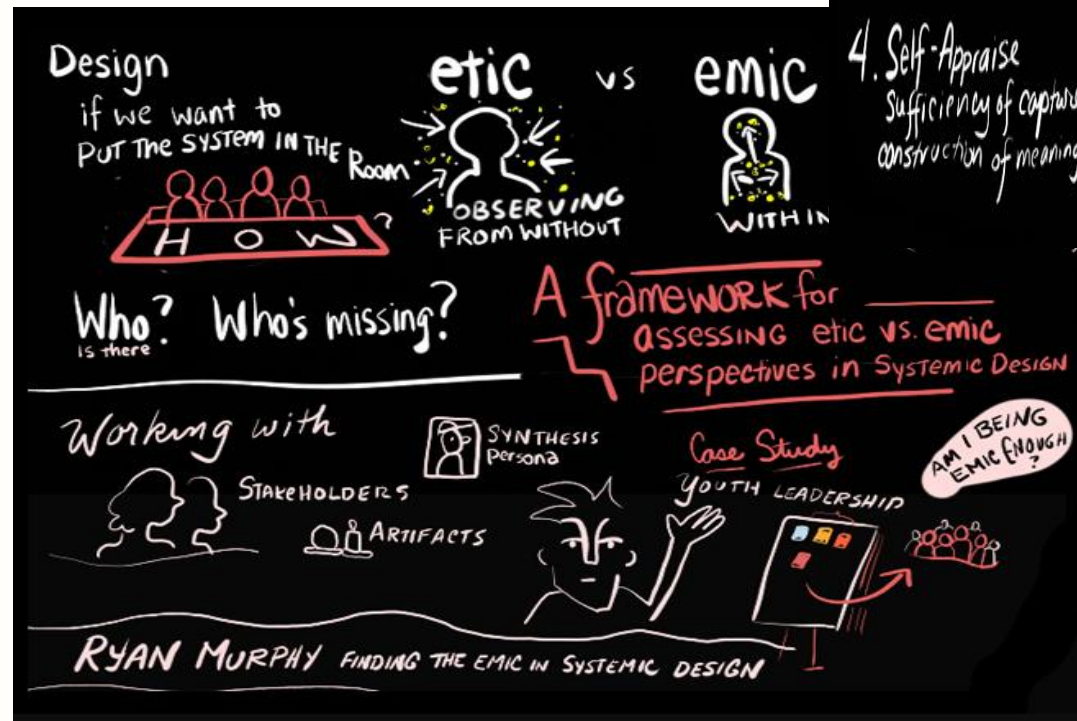 Design
if we want to
PUT THE SYSTEM IN THE Room
HOW?
etic vs emic
OBSERVING
FROM WITHOUT
WITHIN
4. Self-Appraise
Sufficiency of
construction of meaning
Who? Who's missing?
is there
A frameWORK for
assessing etic vs. emic
perspectives in Systemic Design
Working with
STAKEHOLDERS
SYNTHESIS
Persona
ARTIFACTS
Case Study
YOUTH LEADERSHIP
AM I BEING
EMIC ENOUGH
?
RYAN MURPHY FINDING THE EMIC IN SYSTEMIC DESIGN